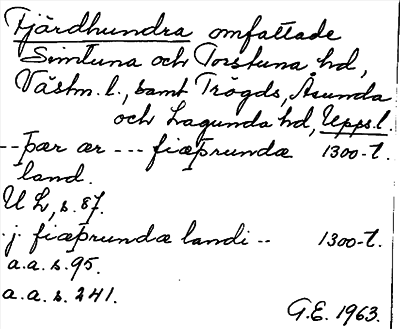 Fjärdhundra omfattade
Simtuna och Torstuna hd,
Västm. l., samt Trögds, Åsunda
och Lagunda hd, Upps. l.
-- þær ær --- fiæþrundæ 1300-t.
land.
U L, s. 87.
j fiæþrundæ landi -- 1300-t.
a.a. s. 95.
a.a. s. 241.
G.E. 1963.